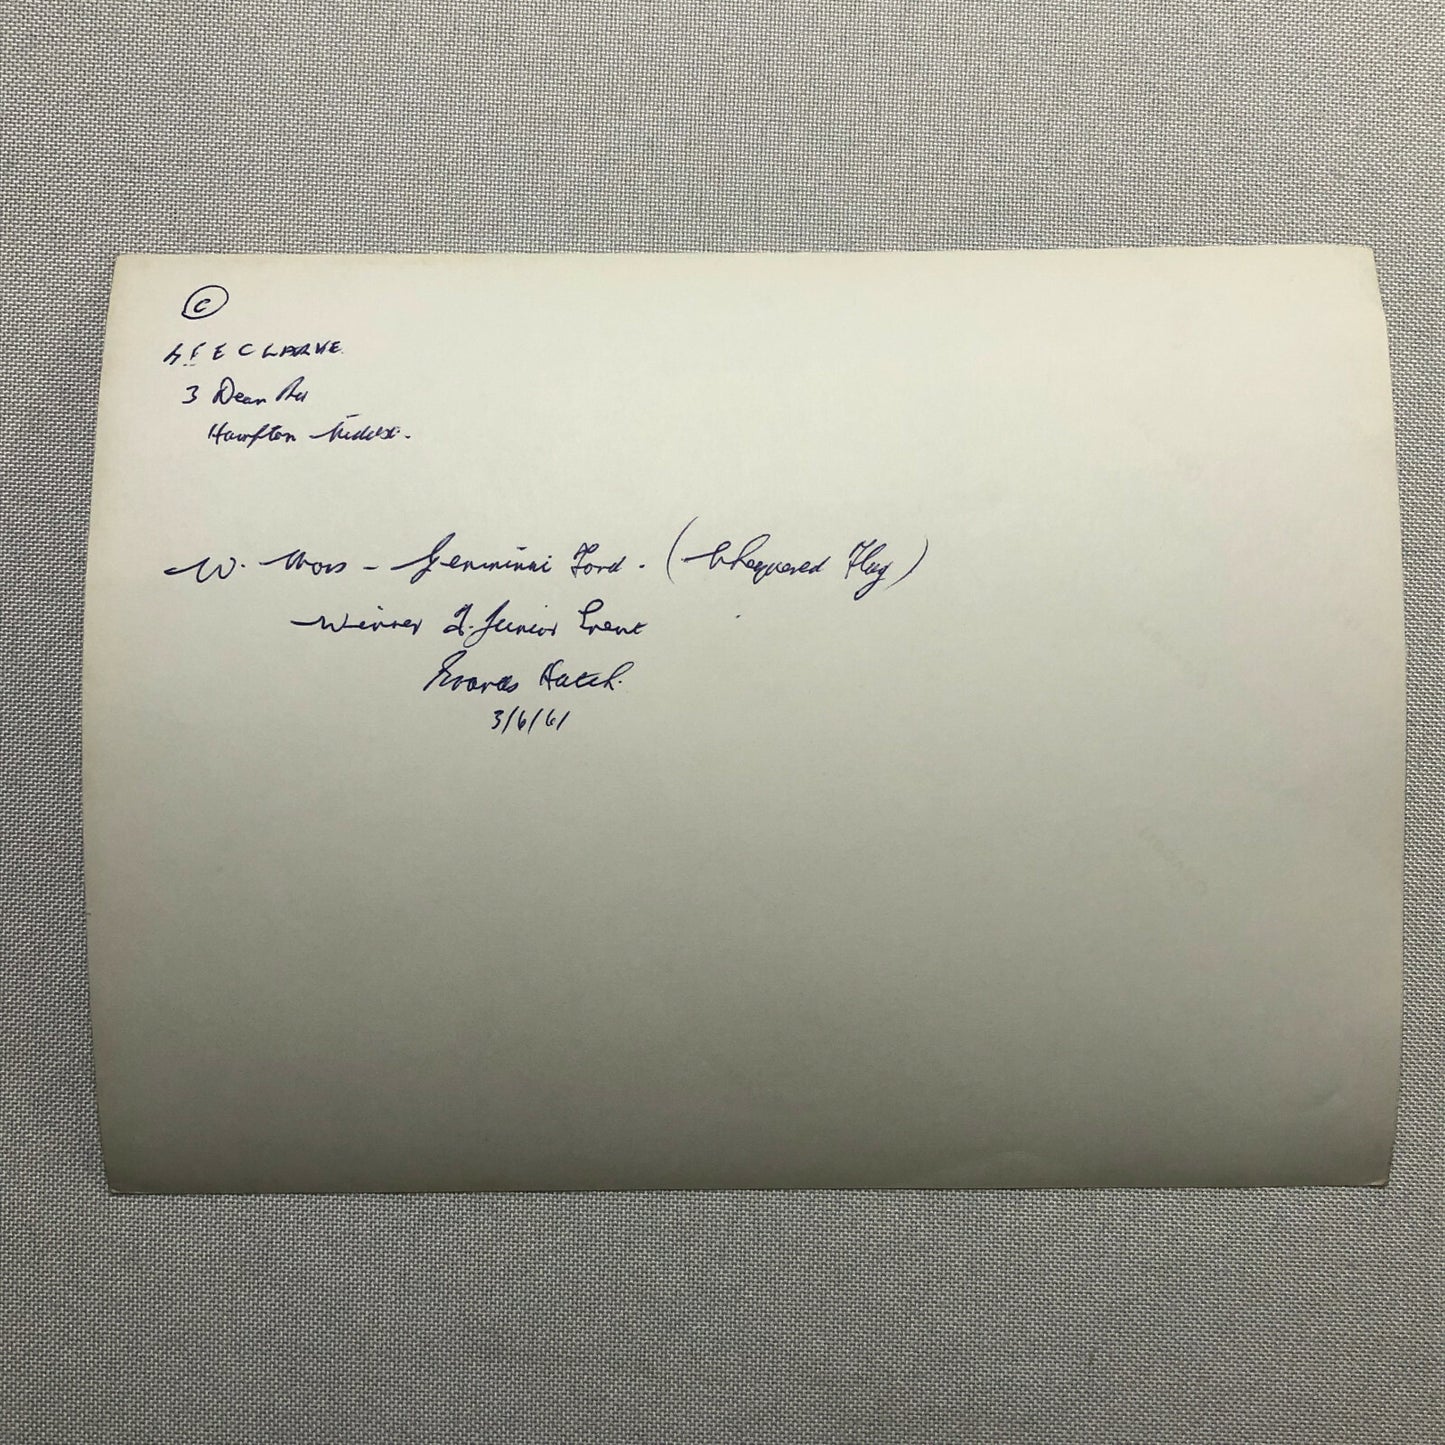 ©
CLARKE
3 Dean Rd
Hampton Middx.
W. Moss - Geminini Ford. (Chequered Flag)
Winner F. Junior Event
Brands Hatch.
3/6/61